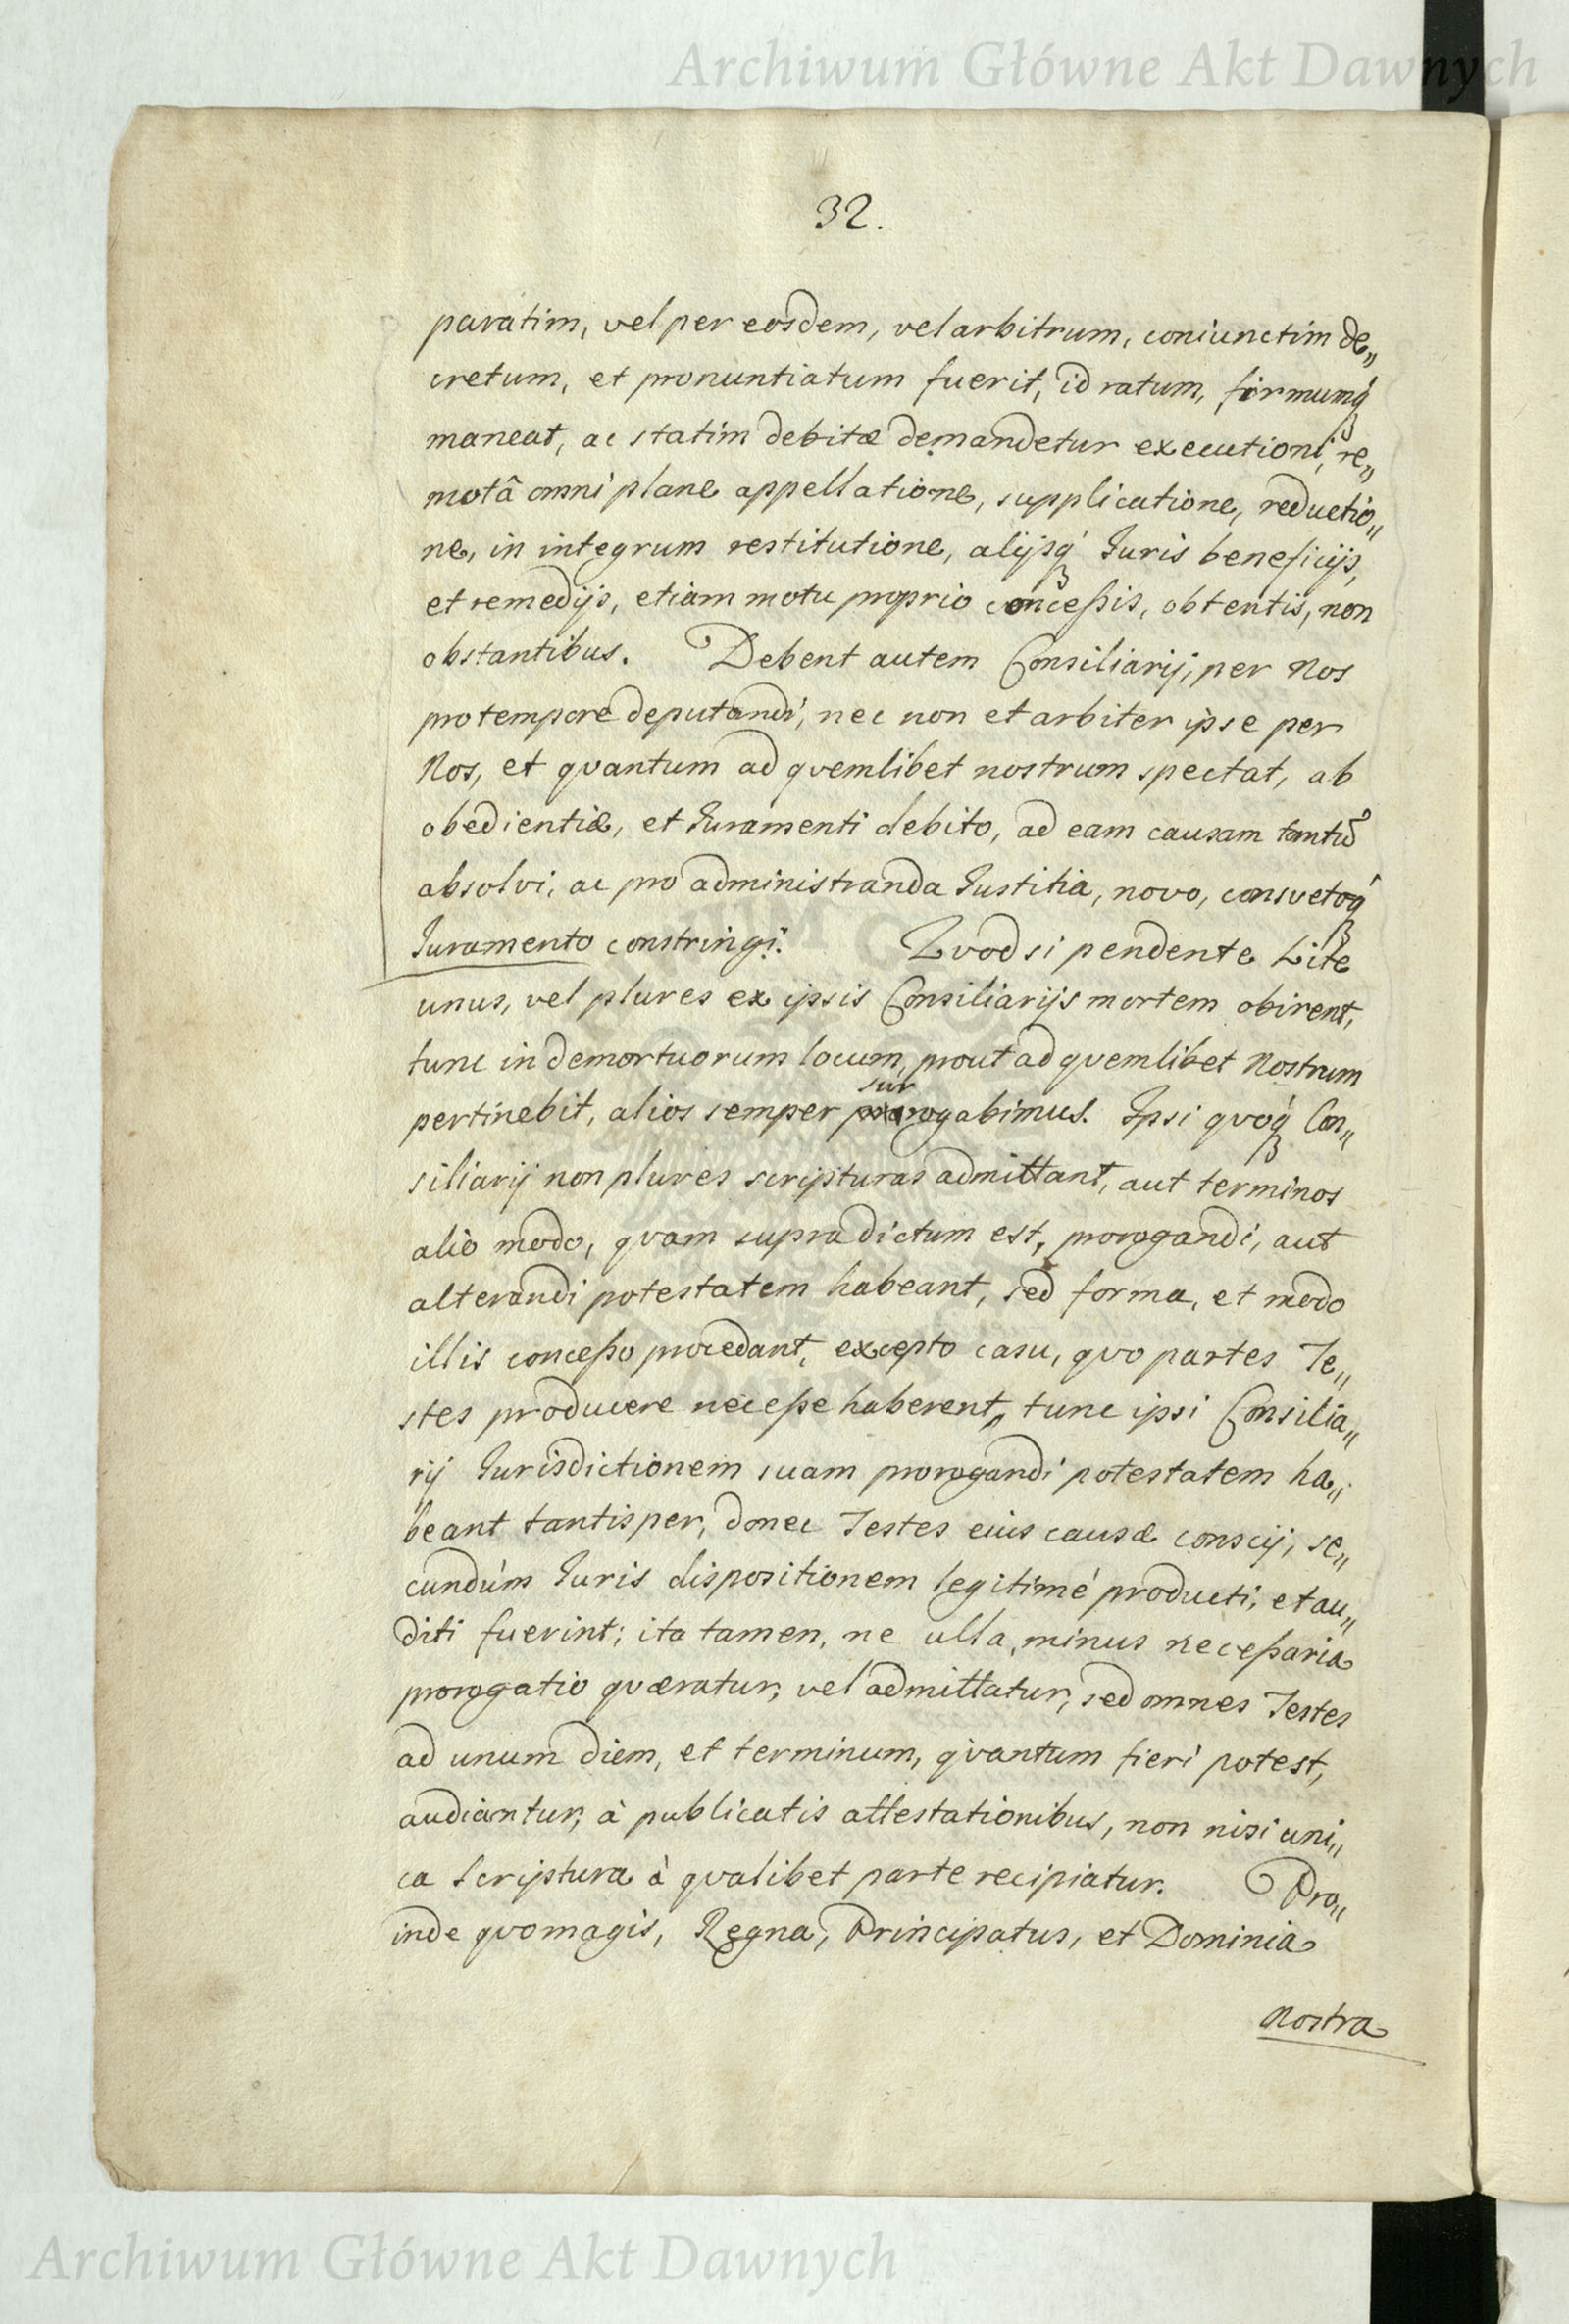 Archiwum Główne Akt Dawnych
32.
paratim, vel per eosdem, vel arbitrum, coniunctim de„
cretum, et pronuntiatum fuerit, id ratum, firmumq́
maneat, ac statim debitæ demandetur executioni, re„
motâ omni plane appellatione, supplicatione, reductio„
ne, in integrum restitutione, alijsq́ Iuris beneficijs,
et remedijs, etiam motu proprio conceßis, obtentis, non
obstantibus. Debent autem Consiliarij, per Nos
pro tempore deputandi, nec non et arbiter ipse per
Nos, et qvantum ad qvemlibet nostrum spectat, ab
obedientiæ, et Iuramenti debito, ad eam causam tantũ
absolvi, ac pro administranda Iustitia, novo, consvetoq́
Iuramento constringi. Qvod si pendente Lite
unus, vel plures ex ipsis Consiliarijs mortem obirent,
tunc in demortuorum locum, prout ad qvemlibet Nostrum
sur
pertinebit, alios semper rogabimus. Ipsi qvoq́ Con„
siliarij non plures scripturas admittant, aut terminos
alio modo, qvam supra dictum est, prorogandi, aut
alterandi potestatem habeant, sed forma, et modo
illis conceßo procedant, excepto casu, qvo partes Te„
stes producere neceße haberent, tunc ipsi Consilia„
rij Iurisdictionem suam prorogandi potestatem ha„
beant tantisper, donec Testes eius causæ conscij, se„
cundùm Iuris dispositionem legitimé producti, et au„
diti fuerint; ita tamen, ne ulla, minus neceßaria
prorogatio qværatur, vel admittatur, sed omnes Testes
ad unum diem, et terminum, qvantum fieri potest,
audiantur, à publicatis attestationibus, non nisi uni„
ca Scriptura à qvalibet parte recipiatur. Pro„
inde qvomagis, Regna, Principatus, et Dominia
Nostra
Archiwum Główne Akt Dawnych